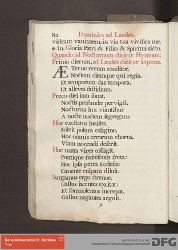 82 Dominica ad Laudes.
videant vanitatem, in via tua vivifica me.
Gloria Patri, & Filio & Spiritui sancto.
Quando ad Nocturnum dicitur Hymnus:
Primo dierum, ad Laudes dicitur sequens.
Æterne rerum conditor,
Noctem diemque qui regis,
Et temporum das tempora,
Ut alleves fastidium.
Preco diei jam sonat,
Noctis profundæ pervigil,
Nocturna lux viantibus
A nocte noctem segregans
Hoc excitatus lucifer
Solvit polum caligine,
Hoc omnis errorum chorus
Viam nocendi deserit.
Hoc nauta vires colligit
Pontique mitescunt freta:
Hoc ipsa petra Ecclesiæ
Canente culpam diluit.
Surgamus ergo strenue,
Gallus jacentes excitat:
Et somnolentos increpat,
Gallus negantes arguit.
DFG